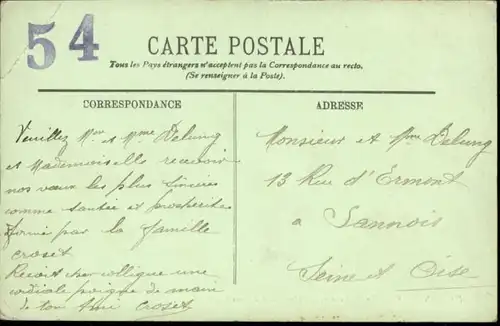 54
CARTE POSTALE
Tous les Pays étrangers n'acceptent pas la Correspondance au recto.
(Se renseigner à la Poste).
CORRESPONDANCE
Veuillez Mr et Mme Delung
et Mademoiselle recevoir
nos vœux les plus sincères
comme santée et prospérité
formé par la famille
croset
Reçoit cher collègue une
cordiale poigne de main
de ton ami Croset
ADRESSE
Monsieur et Mme Delung
13 Rue d'Ermont
a Sannois
Seine et Oise